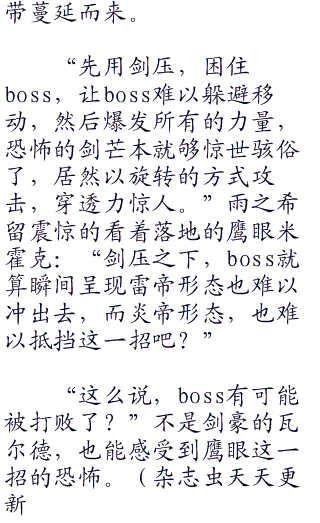 带蔓延而来。
“先用剑压，困住
boss，让boss难以躲避移
动，然后爆发所有的力量，
恐怖的剑芒本就够惊世骇俗
了，居然以旋转的方式攻
击，穿透力惊人。”雨之希
留震惊的看着落地的鹰眼米
霍克：“剑压之下，boss就
算瞬间呈现雷帝形态也难以
冲出去，而炎帝形态，也难
以抵挡这一招吧？”
“这么说，boss有可能
被打败了？”不是剑豪的瓦
尔德，也能感受到鹰眼这一
招的恐怖。（杂志虫天天更
新